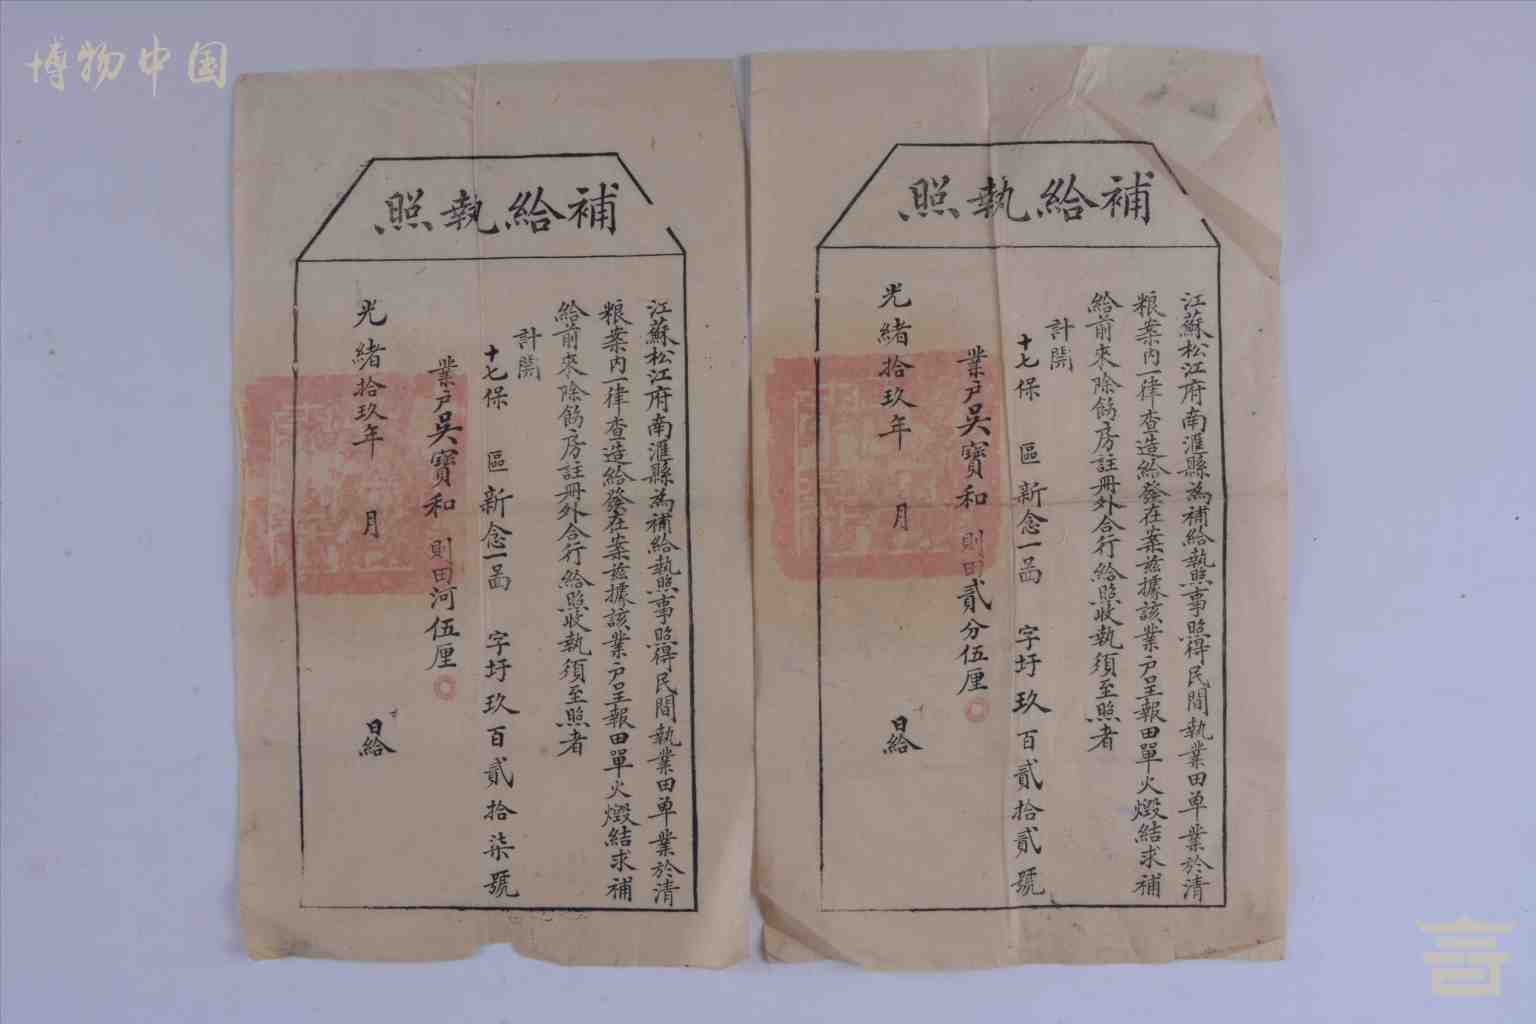 博物中国
補給執照
江蘇松江府南滙縣為補給執照事照得民間執業田单業於清
粮案內一律查造給發在案茲據該業户呈報田單火燬結求補
給前來除飭房註冊外合行給照收執須至照者
計開
十七保　區新念一啚　字圩玖百貳拾貳號
業户吳寶和　則田貳分伍厘
光緒拾玖年　月　日給
補給執照
江蘇松江府南滙縣為補給執照事照得民間執業田单業於清
粮案內一律查造給發在案茲據該業户呈報田單火燬結求補
給前來除飭房註冊外合行給照收執須至照者
計開
十七保　區新念一啚　字圩玖百貳拾柒號
業户吳寶和　則田河伍厘
光緒拾玖年　月　日給